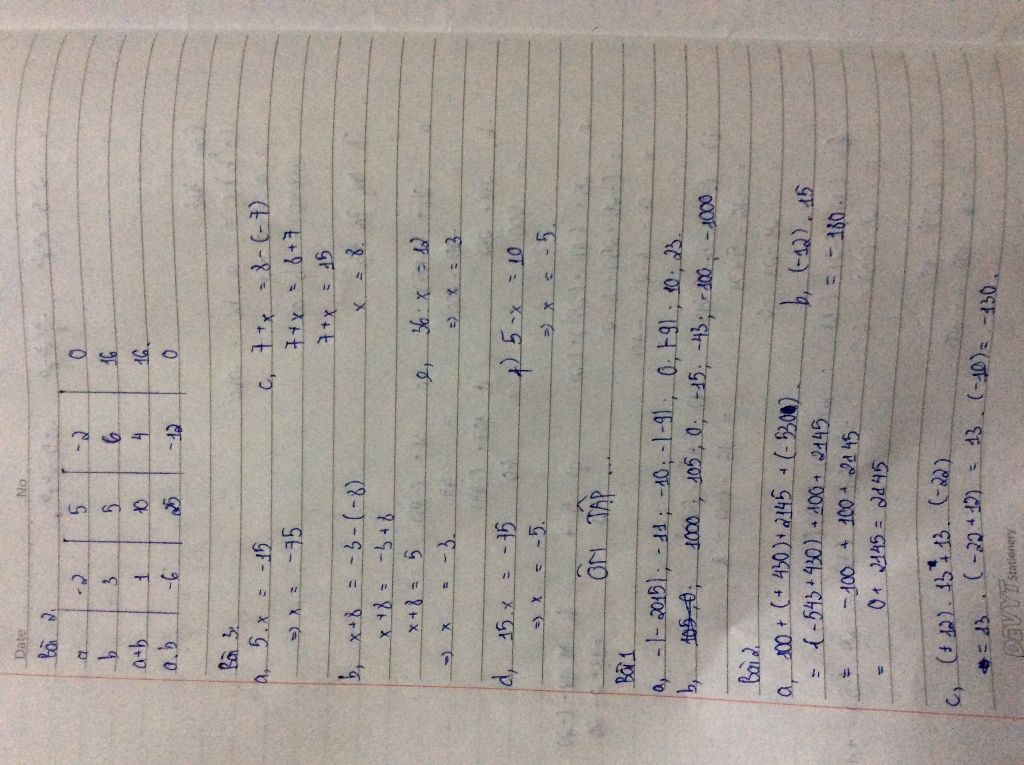 Date No
Bài 2
a -2 5 -2 0
b 3 5 6 16
a+b 1 10 4 16
a.b -6 25 -12 0
Bài 3.
a, 5.x = -15
=> x = -75
b, x+8 = -3-(-8)
x+8 = -3+8
x+8 = 5
=> x = -3.
c, 7+x = 8-(-7)
7+x = 8+7
7+x = 15
x = 8.
d, 15.x = -15
=> x = -5.
e, 36.x = 12
=> x = 3
f) 5-x = 10
=> x = -5
ÔN TẬP...
Bài 1
a, -|-2015|; -11; -10; -|-9|, 0; |-9|; 10; 23.
b, 1000; 105; 0; -15; -43; -100; -1000
Bài 2.
a, 100 + (+430) + 2145 + (-530)
= (-543+430) + 100 + 2145
= -100 + 100 + 2145
= 0 + 2145 = 2145
b, (-12).15
= -180.
c, (+12).13 + 13.(-22)
= 13.(-22+12) = 13.(-10) = -130.
Stationery